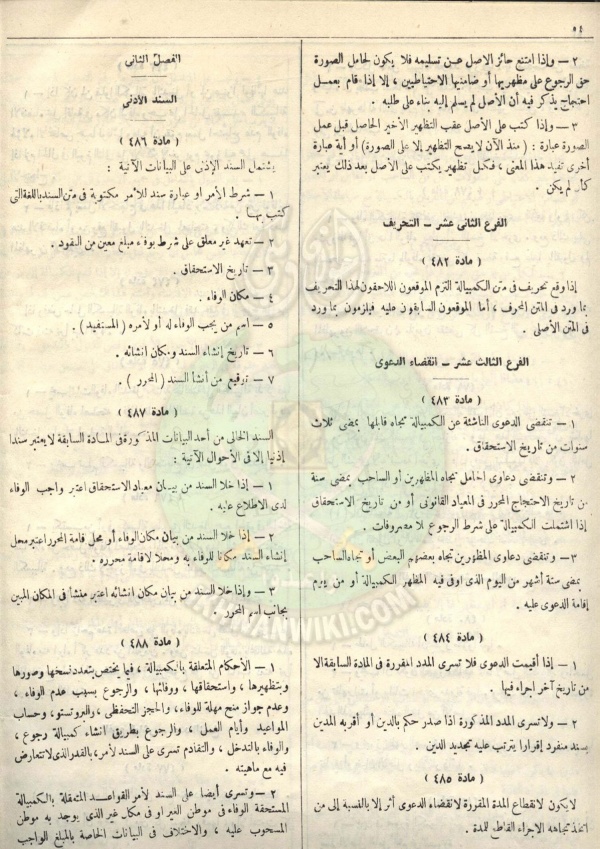 ٥٤
٢ – وإذا امتنع حائز الاصل عن تسليمه فلا يكون لحامل الصورة
حق الرجوع على مظهريها أو ضامنيها الاحتياطيين ، إلا إذا قام بعمل
احتجاج يذكر فيه أن الأصل لم يسلم إليه بناء على طلبه .
٣ – وإذا كتب على الأصل عقب التظهير الأخير الحاصل قبل عمل
الصورة عبارة : ( منذ الآن لا يصح التظهير إلا على الصورة ) أو أية عبارة
أخرى تفيد هذا المعنى ، فكل تظهير يكتب على الأصل بعد ذلك يعتبر
كأن لم يكن .
الفرع الثانى عشر – التحريف
( مادة ٤٨٢ )
إذا وقع تحريف فى متن الكمبيالة التزم الموقعون اللاحقون لهذا التحريف
بما ورد فى المتن المحرف ، أما الموقعون السابقون عليه فيلزمون بما ورد
فى المتن الأصلى .
الفرع الثالث عشر – انقضاء الدعوى
( مادة ٤٨٣ )
١ – تنقضى الدعوى الناشئة عن الكمبيالة تجاه قابلها بمضى ثلاث
سنوات من تاريخ الاستحقاق .
٢ – وتنقضى دعاوى الحامل تجاه المظهرين أو الساحب بمضى سنة
من تاريخ الاحتجاج المحرر فى الميعاد القانونى أو من تاريخ الاستحقاق
إذا اشتملت الكمبيالة على شرط الرجوع بلا مصروفات .
٣ – وتنقضى دعاوى المظهرين تجاه بعضهم البعض أو تجاه الساحب
بمضى ستة أشهر من اليوم الذى اوفى فيه المظهر الكمبيالة أو من يوم
إقامة الدعوى عليه .
( مادة ٤٨٤ )
١ – إذا أقيمت الدعوى فلا تسرى المدد المقررة فى المادة السابقة الا
من تاريخ آخر اجراء فيها .
٢ – ولا تسرى المدد المذكورة اذا صدر حكم بالدين أو أقر به المدين
بسند منفرد إقرارا يترتب عليه تجديد الدين .
( مادة ٤٨٥ )
لا يكون لانقطاع المدة المقررة لانقضاء الدعوى أثر إلا بالنسبة إلى من
اتخذ تجاهه الاجراء القاطع للمدة .
الفصل الثانى
السند الأذنى
( مادة ٤٨٦ )
يشتمل السند الإذنى على البيانات الآتية :
١ – شرط الأمر او عبارة سند للأمر مكتوبة فى متن السند باللغة التى
كتب بها .
٢ – تعهد غير معلق على شرط بوفاء مبلغ معين من النقود .
٣ – تاريخ الاستحقاق .
٤ – مكان الوفاء .
٥ – اسم من يجب الوفاء له أو لأمره ( المستفيد ) .
٦ – تاريخ إنشاء السند ومكان انشائه .
٧ – توقيع من أنشأ السند ( المحرر ) .
( مادة ٤٨٧ )
السند الخالى من أحد البيانات المذكورة فى المادة السابقة لا يعتبر سندا
إذنيا إلا فى الأحوال الآتية :
١ – إذا خلا السند من بيان ميعاد الاستحقاق اعتبر واجب الوفاء
لدى الاطلاع عليه .
٢ – إذا خلا السند من بيان مكان الوفاء أو محل اقامة المحرر اعتبر محل
إنشاء السند مكانا للوفاء به ومحلا لاقامة محرره .
٣ – وإذا خلا السند من بيان مكان انشائه اعتبر منشأ فى المكان المبين
بجانب اسم المحرر .
( مادة ٤٨٨ )
١ – الأحكام المتعلقة بالكمبيالة ، فيما يختص بتعدد نسخها وصورها
وبتظهيرها ، واستحقاقها ، ووفائها ، والرجوع بسبب عدم الوفاء ،
وعدم جواز منح مهلة للوفاء ، والحجز التحفظى ، والبروتستو ، وحساب
المواعيد وأيام العمل ، والرجوع بطريق انشاء كمبيالة رجوع ،
والوفاء بالتدخل ، والتقادم تسرى على السند لأمر ، بالقدر الذى لا تتعارض
فيه مع ماهيته .
٢ – وتسرى أيضا على السند لأمر القواعد المتعلقة بالكمبيالة
المستحقة الوفاء فى موطن الغير او فى مكان غير الذى يوجد به موطن
المسحوب عليه ، والاختلاف فى البيانات الخاصة بالمبلغ الواجب